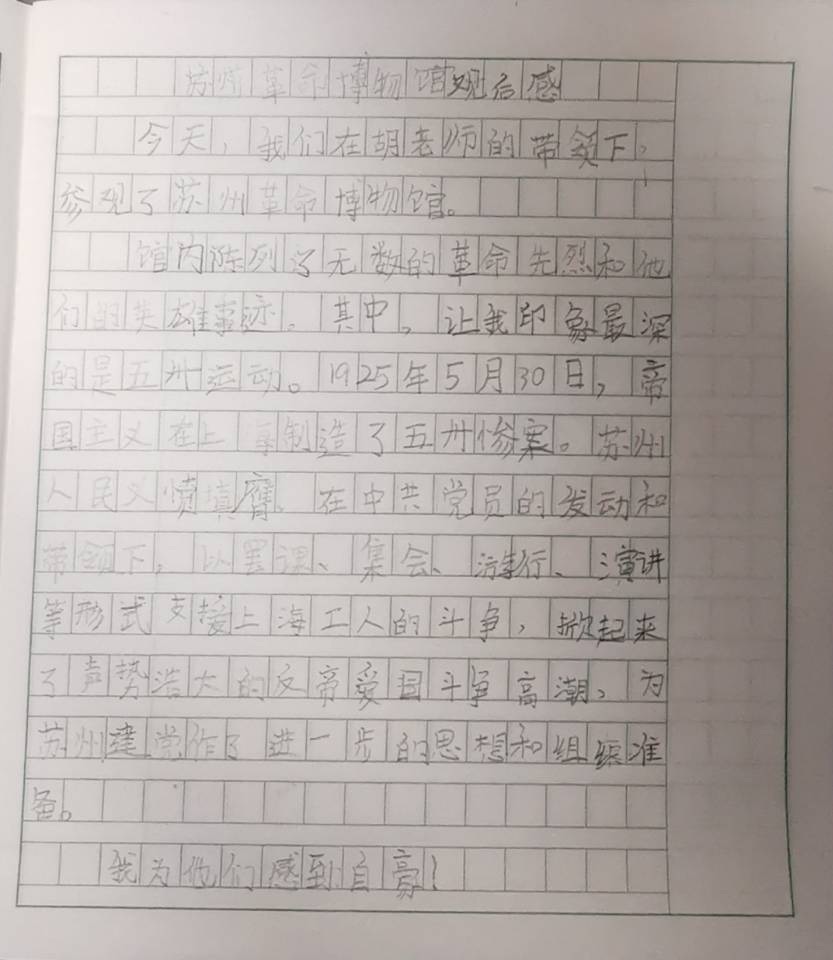 苏州革命博物馆观后感
今天，我们在胡老师的带领下，
参观了苏州革命博物馆。
馆内陈列了无数的革命先烈和他
们的英雄事迹。其中，让我印象最深
的是五卅运动。1925年5月30日，帝
国主义在上海制造了五卅惨案。苏州
人民义愤填膺。在中共党员的发动和
带领下，以罢课、集会、游行、演讲
等形式支援上海工人的斗争，掀起来
了声势浩大的反帝爱国斗争高潮，为
苏州建党作了进一步的思想和组织准
备。
我为他们感到自豪！